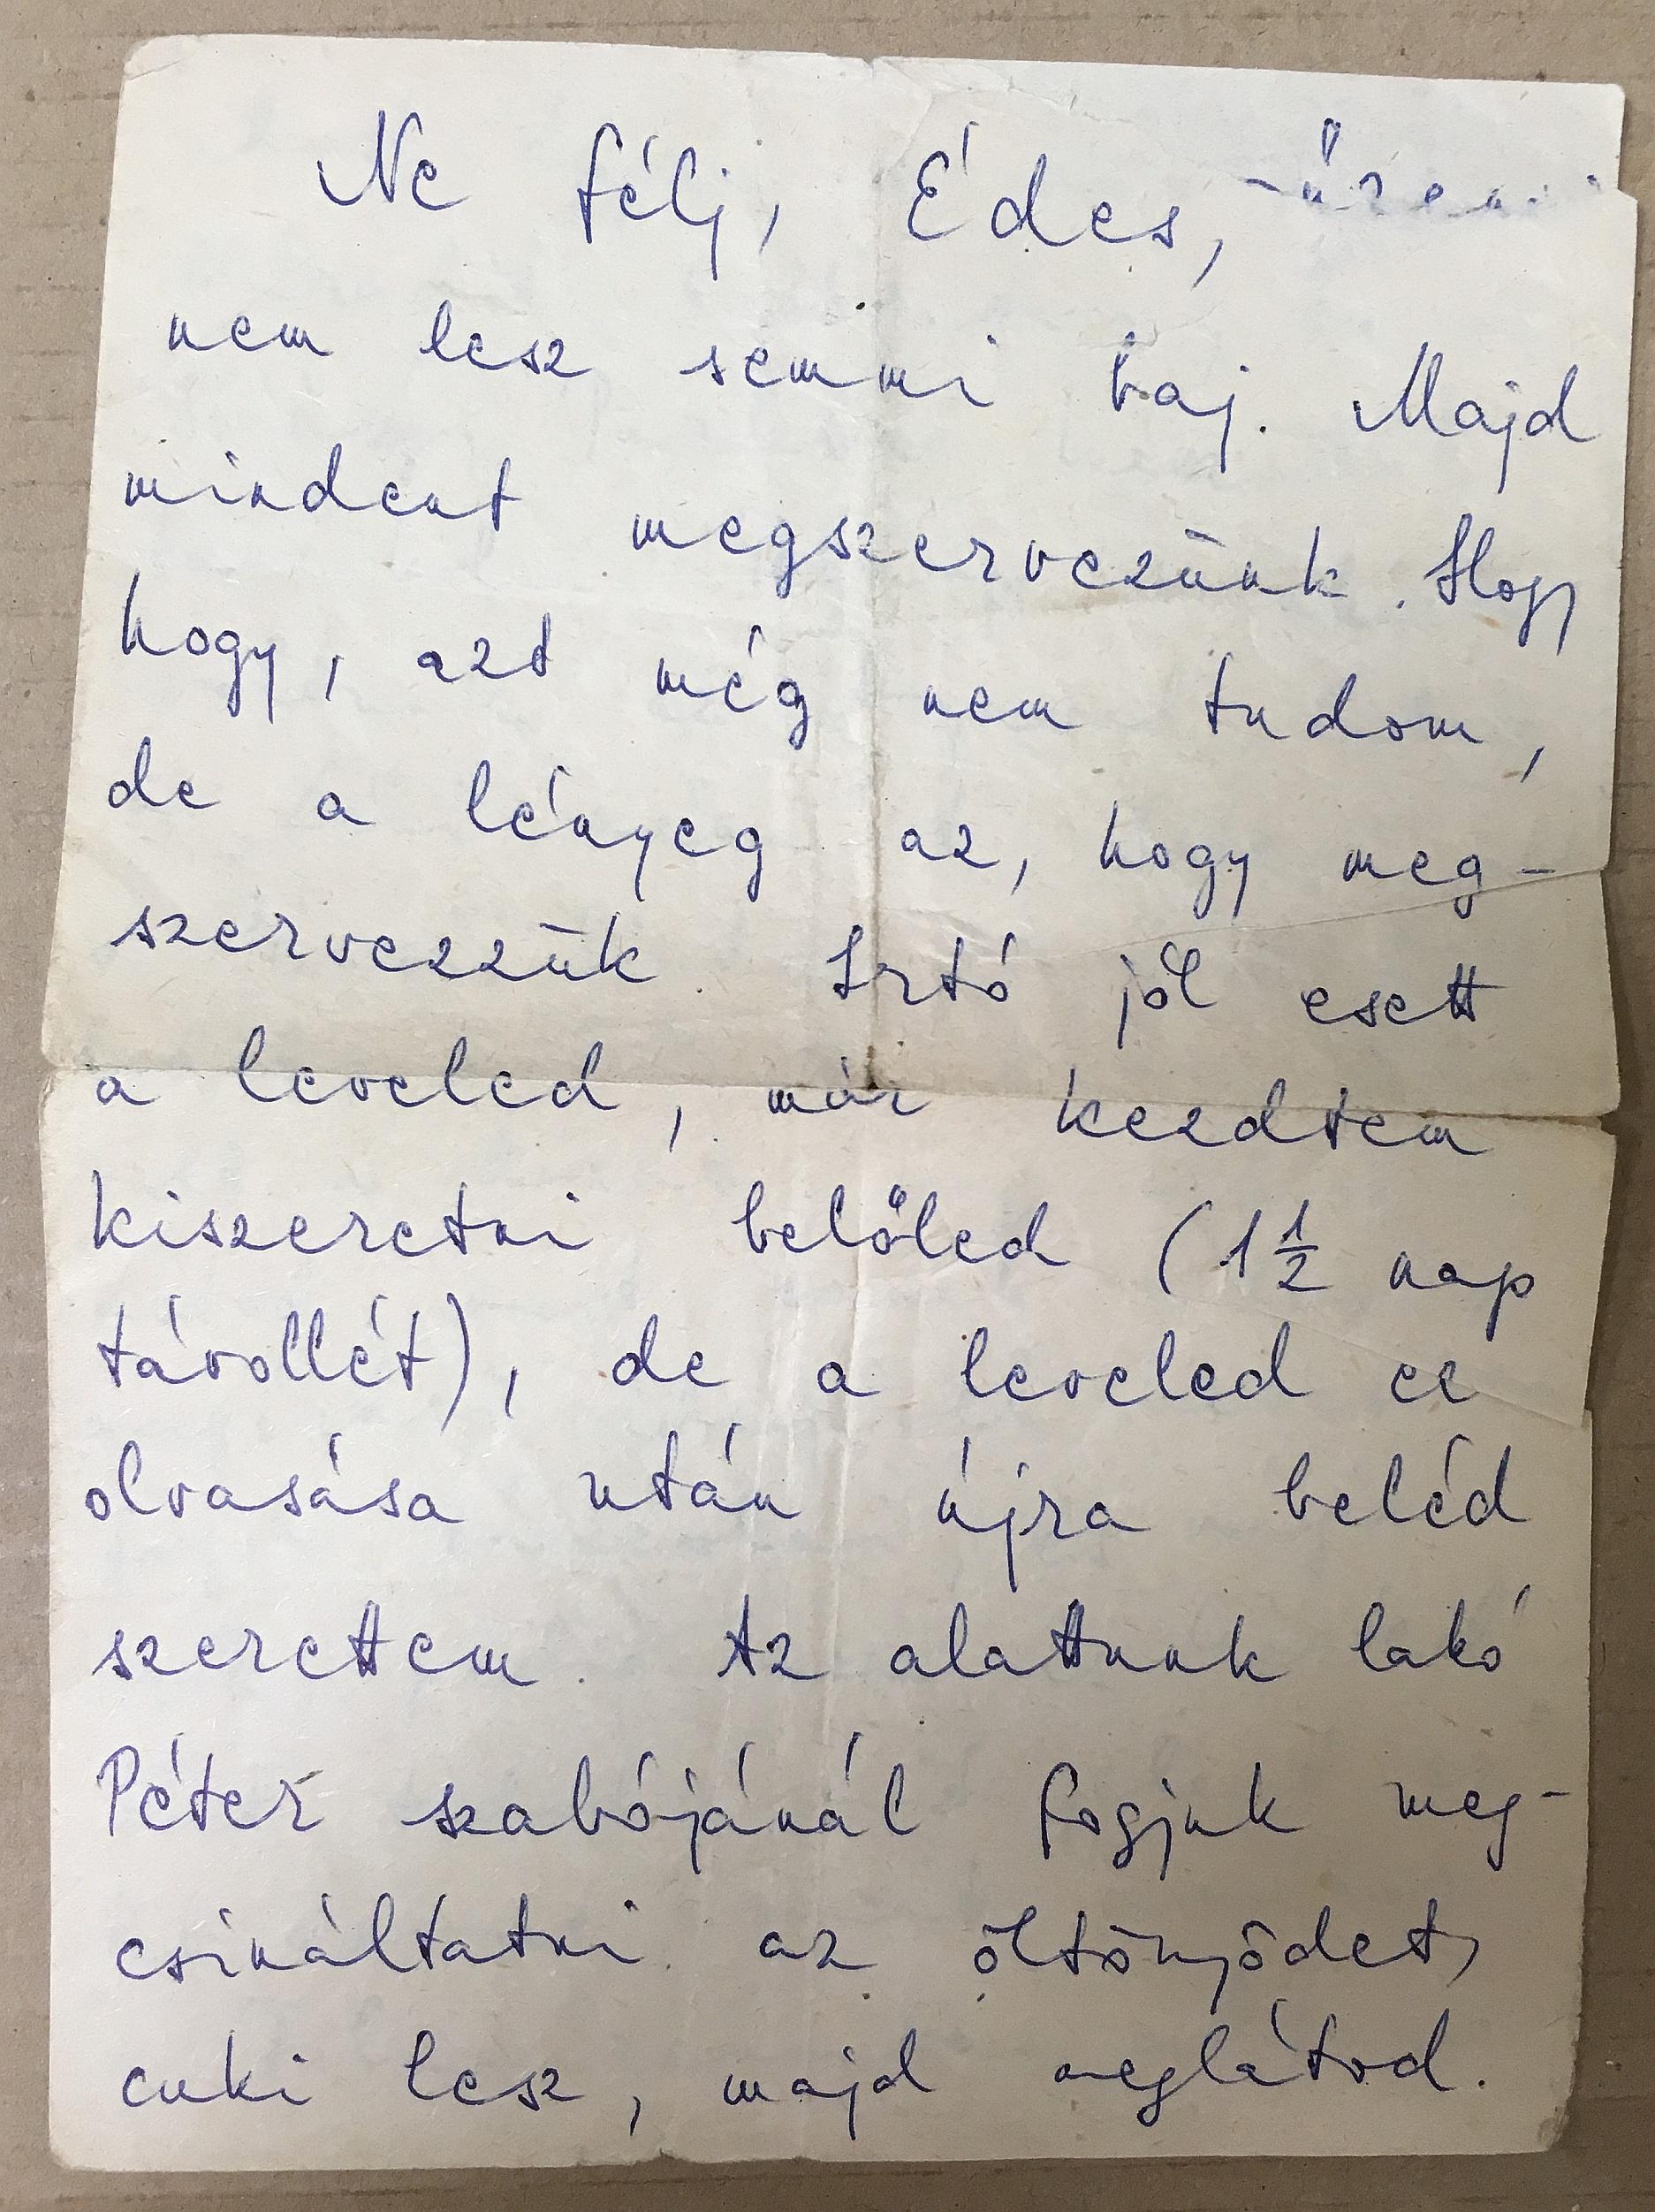 Ne félj, Édes,
nem lesz semmi baj. Majd
mindent megszervezünk. Hogy
hogy, azt még nem tudom,
de a lényeg az, hogy meg-
szervezzük. Irtó jól esett
a leveled, már kezdtem
kiszeretni belőled (1 1/2 nap
távollét), de a leveled el
olvasása után újra beléd
szerettem. Az alattunk lakó
Péter szabójánál fogjuk meg-
csináltatni az öltönyödet,
cuki lesz, majd meglátod.